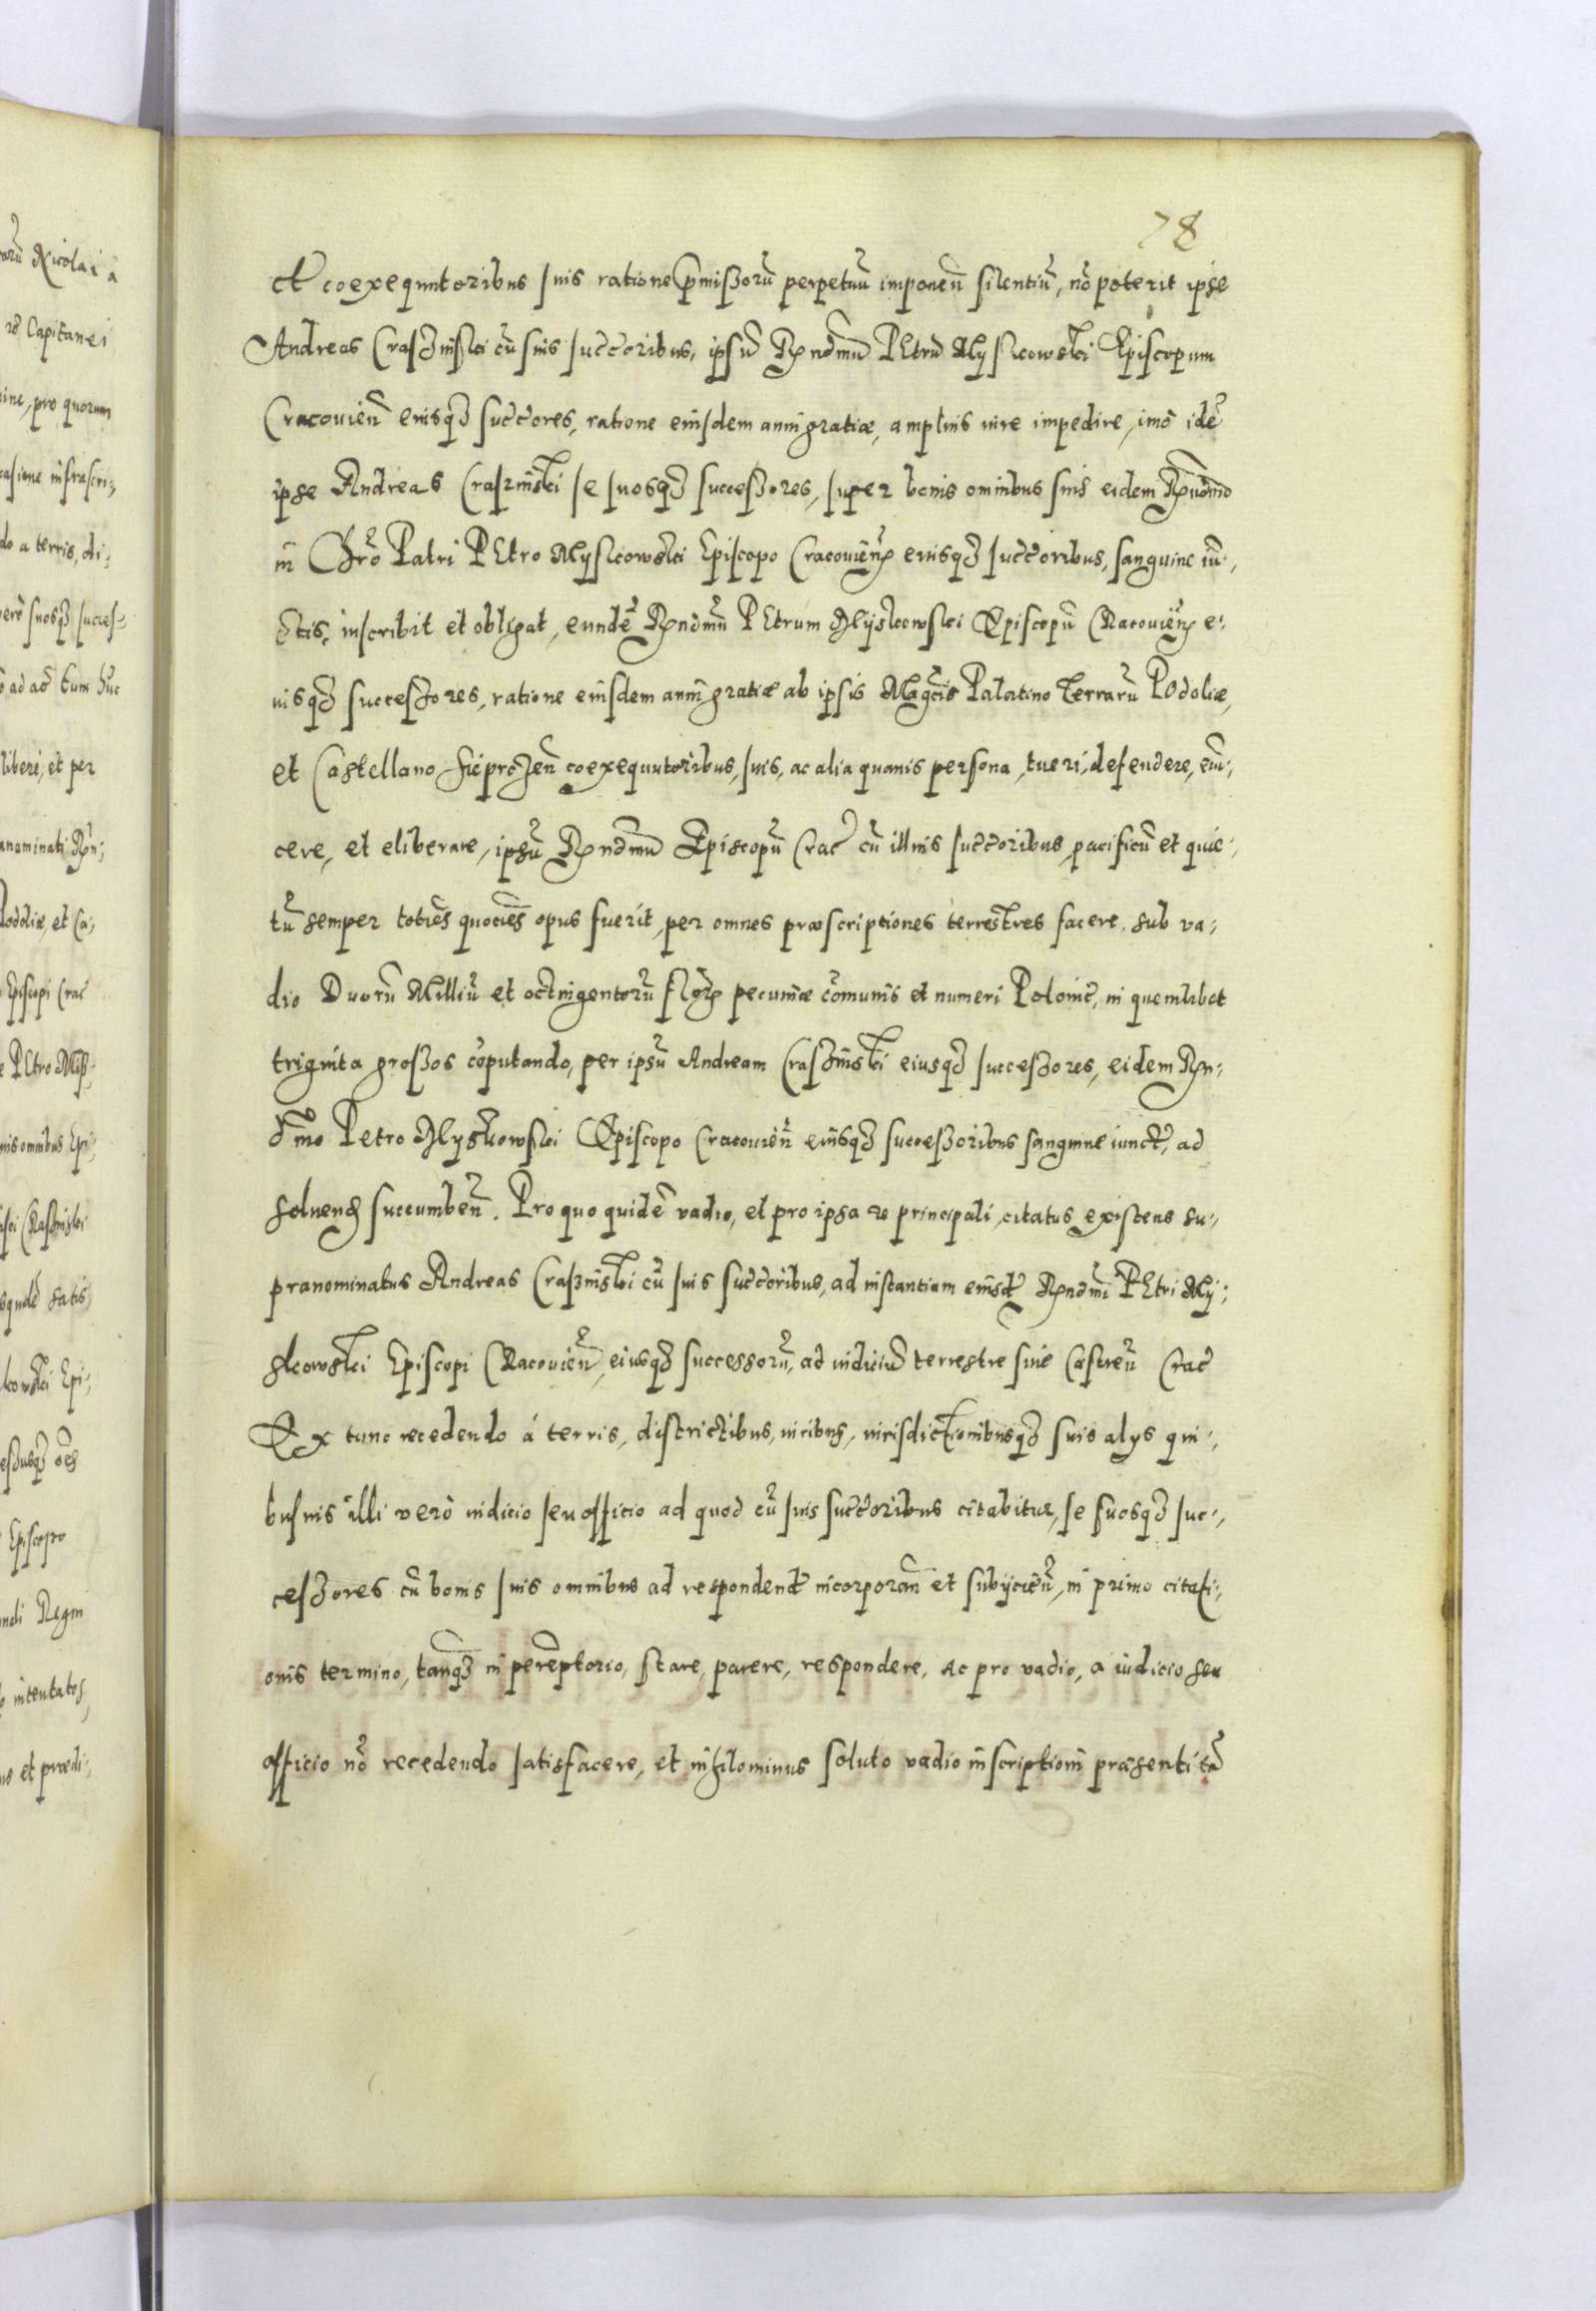 78
et coexequutoribus suis ratione p̃missorũ perpetuũ imponeñ silentiũ, nõ poterit ipse
Andreas Craszinski cũ suis succ̃oribus, ipsũ Rñdmũ PEtrũ Myskowski Episcopum
Cracovieñ eiusq₃ succ̃ores, ratione eiusdem anni gratiæ, amplius iure impedire, imò idẽ
ipse Andreas Craszinski se suosq₃ successores, super bonis omnibus suis eidem Rñdmo
in Chrõ Patri PEtro Myskowski Episcopo Cracovieñ eiusq₃ succ̃oribus, sanguine iũ,
ctis, inscribit et obligat, eundẽ Rñdmũ PEtrum Myskowski Episcopũ CRacovieñ e,
iusq₃ successores, ratione eiusdem anni gratiæ ab ipsis Mag̃cis Palatino terrarũ POdoliæ,
et Castellano Sieprczeñ coexequutoribus, suis, ac alia quauis persona, tueri, defendere, eui,
cere, et eliberare, ipsũ Rñdmũ Episcopũ Crac̃ cũ illius succ̃oribus, pacificũ et quie,
tũ semper toties quocies opus fuerit, per omnes præscriptiones terrestres facere, sub va,
dio Duorũ Milliũ et octingentorũ flor̃ pecuniæ cõmunis et numeri Polonic̃, in quemlibet
triginta grossos cõputando, per ipsũ Andream Craszinski eiusq₃ successores, eidem Rñ,
dmo Petro Myskowski Episcopo Cracovieñ eiusq₃ successoribus sanguine iunct̃, ad
soluend̃ succumbeñ. Pro quo quidẽ vadio, et pro ipsa re principali, citatus existens su,
pranominatus Andreas Craszinski cũ suis succ̃oribus, ad instantiam eiusd̃ Rñdmi PEtri My,
skowski Episcopi CRacovieñ, eiusq₃ successorũ, ad iudiciũ terrestre siue Castreñ Crac̃
Ex tunc recedendo á terris, districtibus, iuribus, iurisdictionibusq₃ suis alys qui,
busuis illi verò iudicio seu officio ad quod cũ suis succ̃oribus citabitur, se suosq₃ suc,
cessores cũ bonis suis omnibus ad respondend̃ incorporañ et subijcieñ, in primo citati,
onis termino, tanq̃₃ in perẽptorio, stare, parere, respondere, ac pro vadio, a iudicio seu
officio nõ recedendo satisfacere, et nihilominus soluto vadio inscriptioni præsenti tã